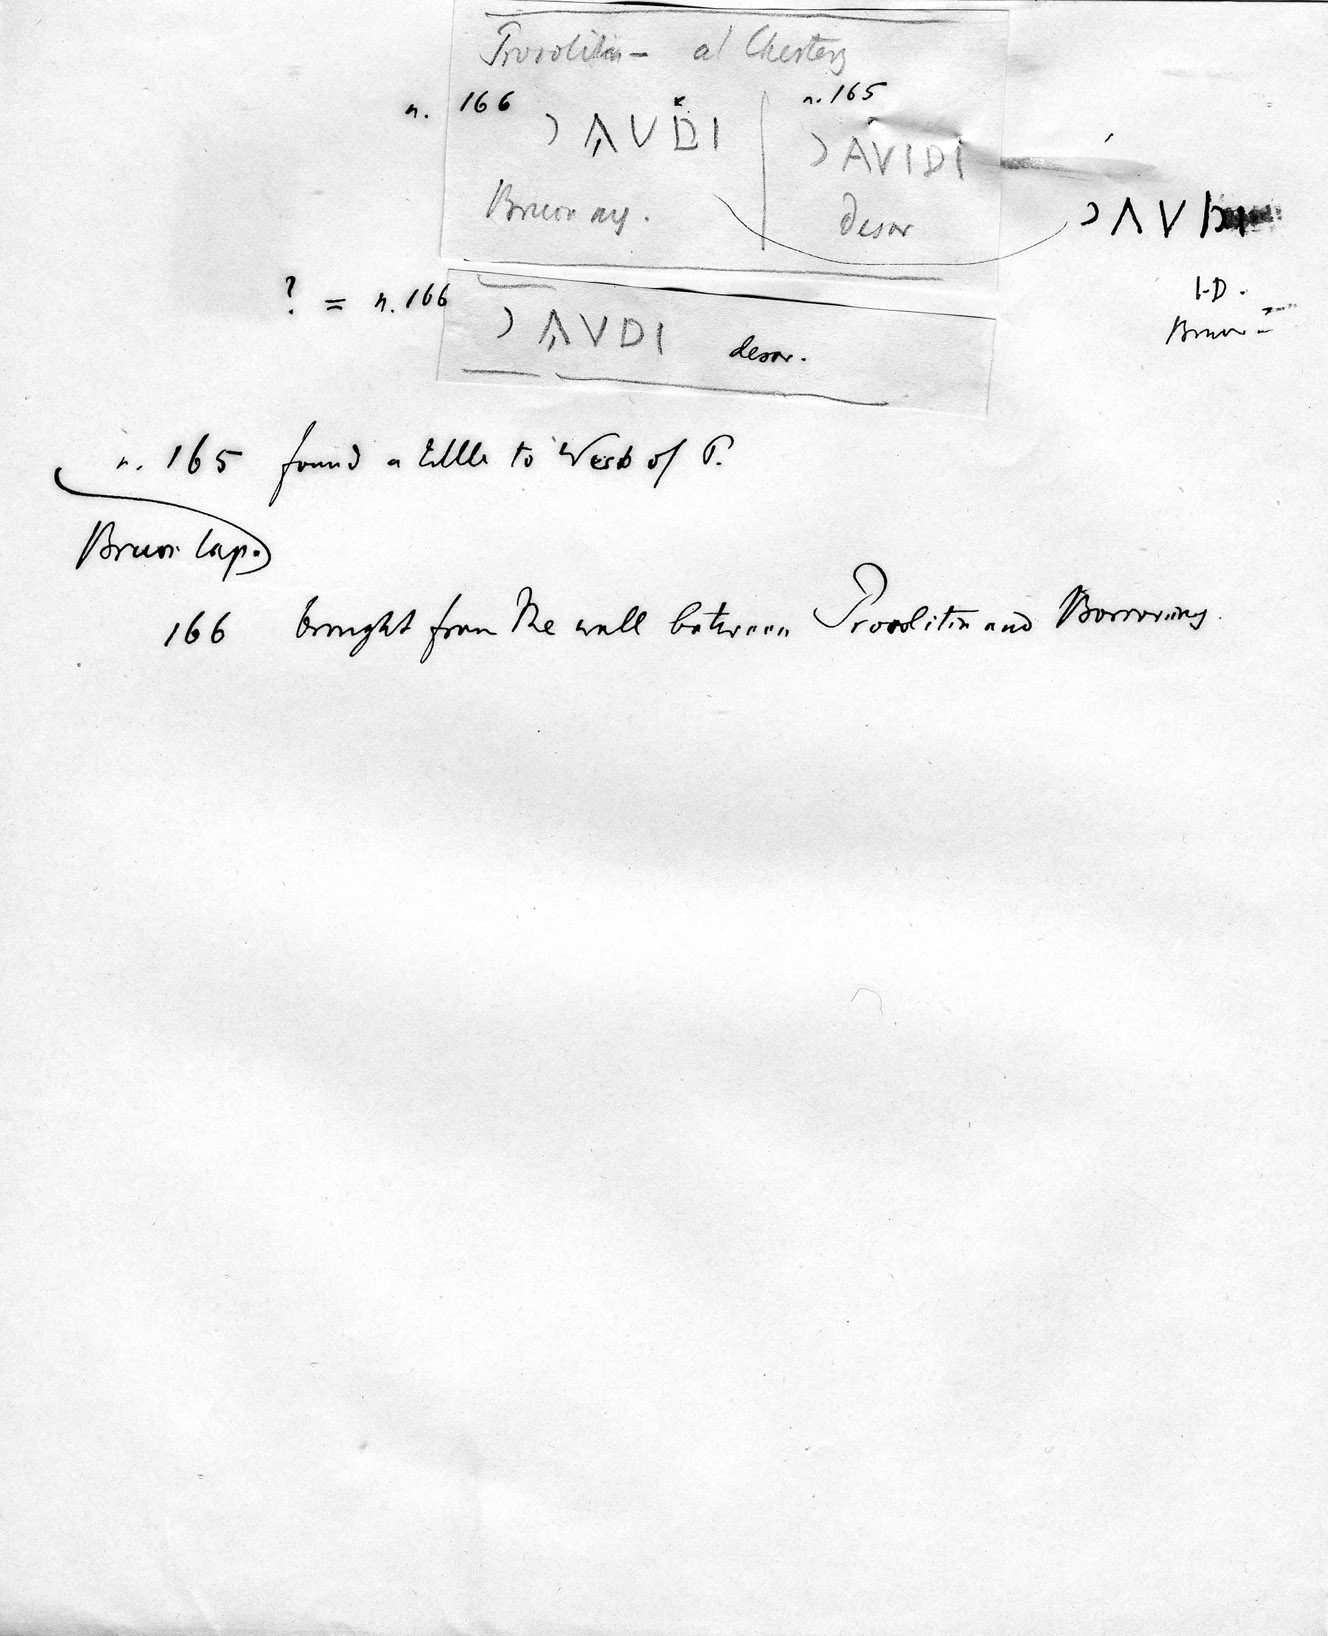 Procolitia — at Chesters
n. 166 n. 165
Ɔ AVDI Ɔ AVIDI
Bruce Ɔ AVDI
descr
I-D.
Bruce
? = n. 166 Ɔ AVDI descr.
n. 165 found a little to West of P.
Bruce Lap.
166 brought from the wall between Procolitia and